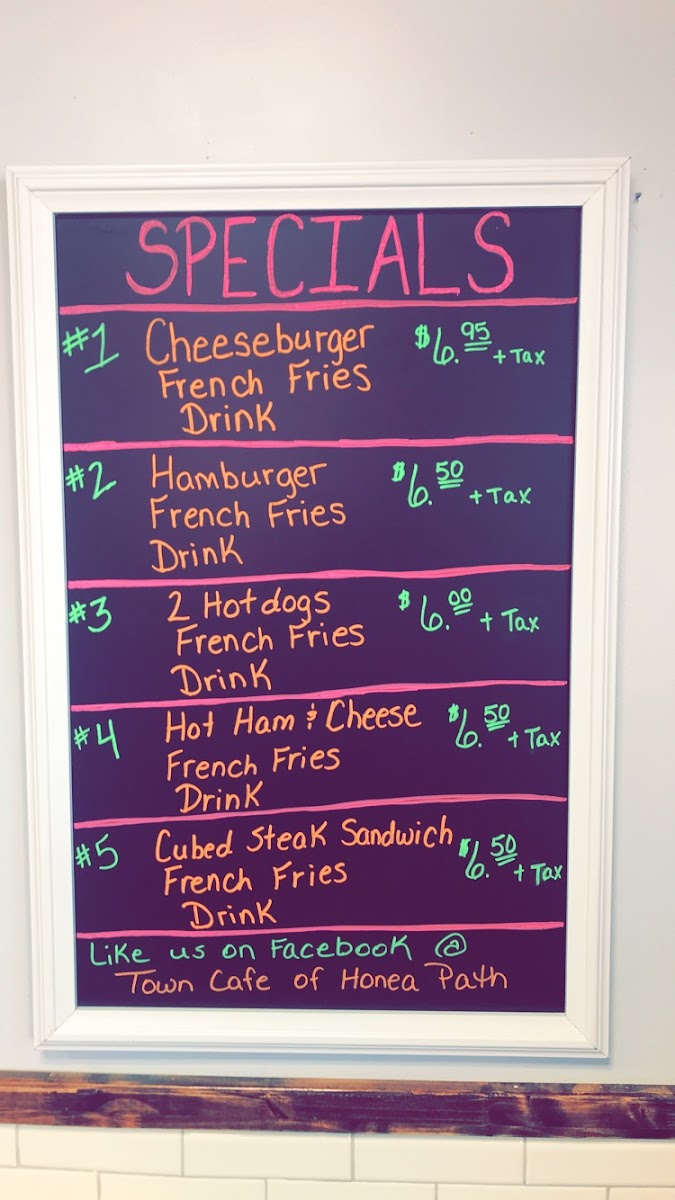 SPECIALS
#1 Cheeseburger $6.95 + Tax
French Fries
Drink
#2 Hamburger $6.50 + Tax
French Fries
Drink
#3 2 Hotdogs $6.00 + Tax
French Fries
Drink
#4 Hot Ham & Cheese $6.50 + Tax
French Fries
Drink
#5 Cubed Steak Sandwich $6.50 + Tax
French Fries
Drink
Like us on Facebook @
Town Cafe of Honea Path